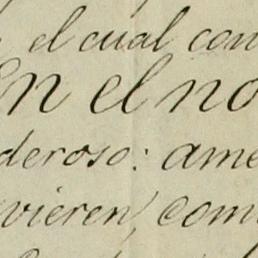 el cual con
En el no
deroso: ame
vieren, com